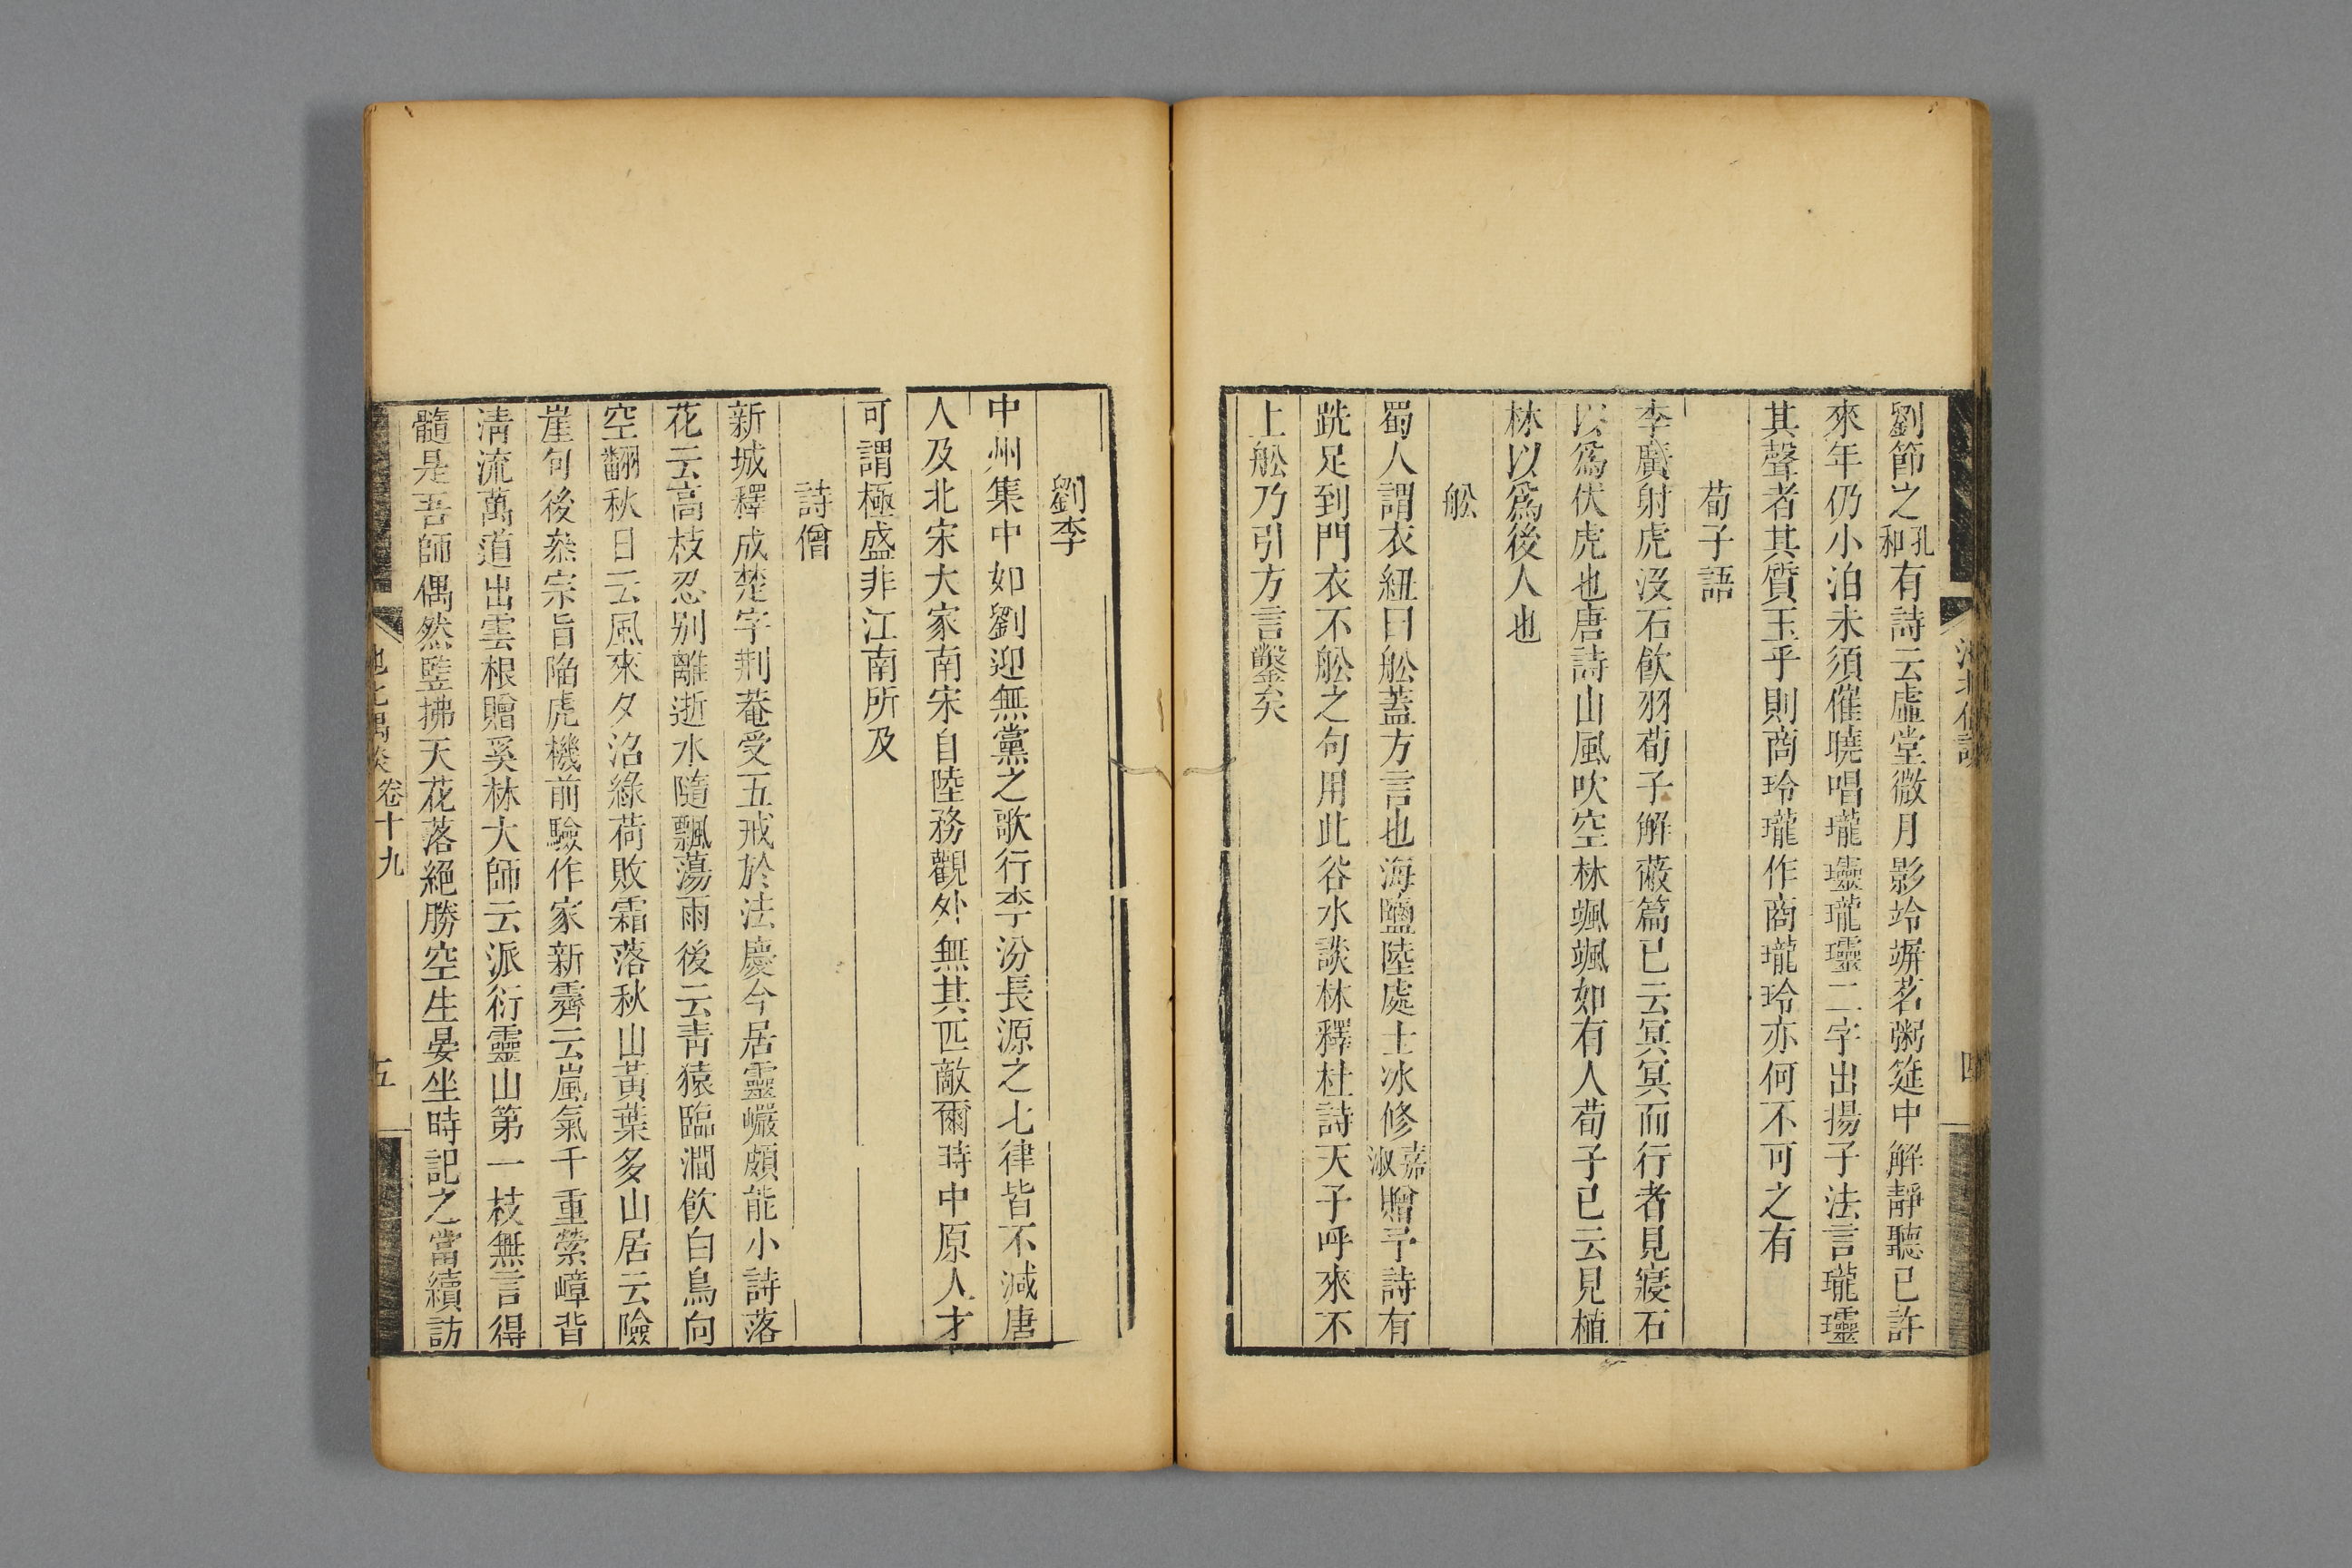 劉節之孔和有詩云虛堂微月影竛竮茗粥筵中解靜聽已許
來年仍小泊未須催曉唱瓏瓏瓏二字出揚子法言瓏
其聲者其質玉乎則商玲瓏作商瓏玲亦何不可之有
荀子語
李廣射虎沒石飲羽荀子解蔽篇已云冥冥而行者見寢石
以為伏虎也唐詩山風吹空林颯颯如有人荀子已云見植
林以為後人也
舩
蜀人謂衣紐曰舩蓋方言也海鹽陸處士冰修嘉淑贈予詩有
跣足到門衣不舩之句用此谷水談林釋杜詩天子呼來不
上舩乃引方言鑿矣
劉李
中州集中如劉迎無黨之歌行李汾長源之七律皆不減唐
人及北宋大家南宋自陸務觀外無其匹敵爾時中原人才
可謂極盛非江南所及
詩僧
新城釋成楚字荆菴受五戒於法慶今居靈巖頗能小詩落
花云高枝忍别離逝水隨飄蕩雨後云青猿臨澗飲白鳥向
空翻秋日云風來夕沼綠荷敗霜落秋山黃葉多山居云險
崖句後叅宗旨陷虎機前驗作家新霽云嵐氣千重縈嶂背
清流萬道出雲根贈奚林大師云派衍靈山第一枝無言得
髓是吾師偶然豎拂天花落絕勝空生晏坐時記之當續訪
卷十九
五